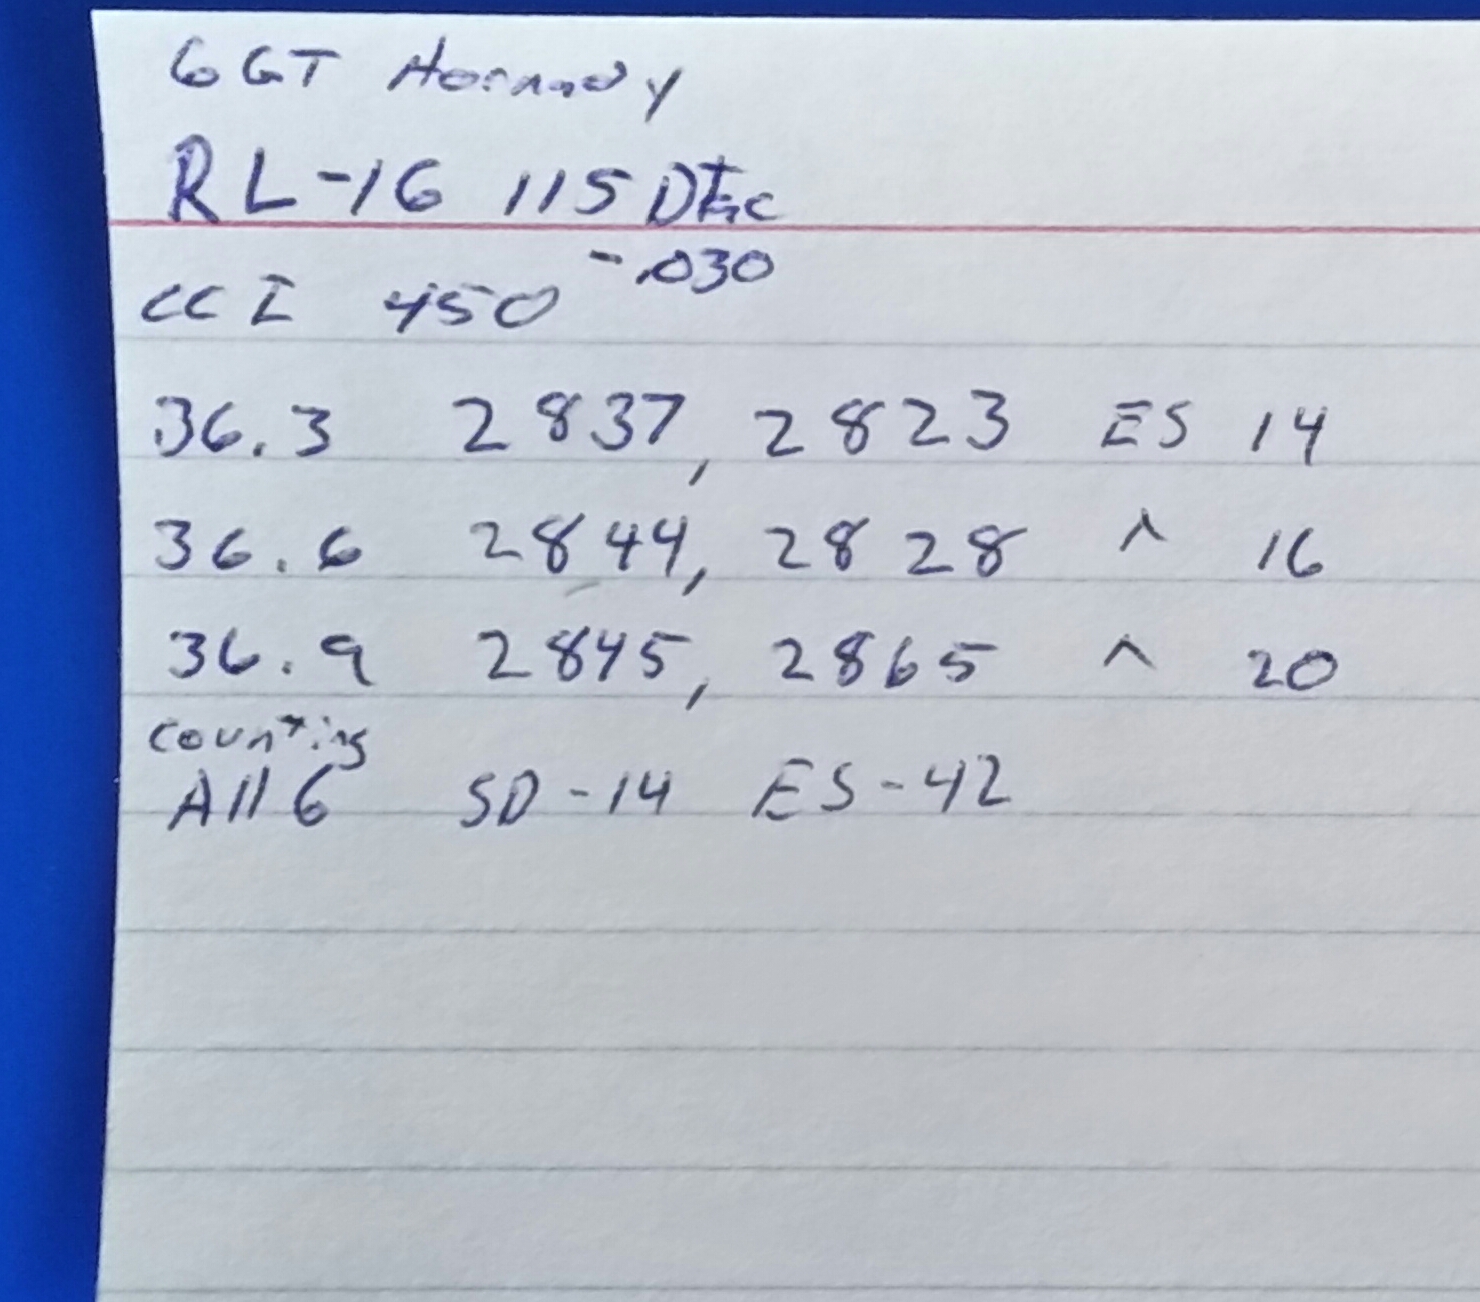 6GT Hornady
RL-16 115 DTAC
-.030
CCI 450
36.3 2837, 2823 ES 14
36.6 2844, 2828 ^ 16
36.9 2845, 2865 ^ 20
counting
All 6 SD-14 ES-42